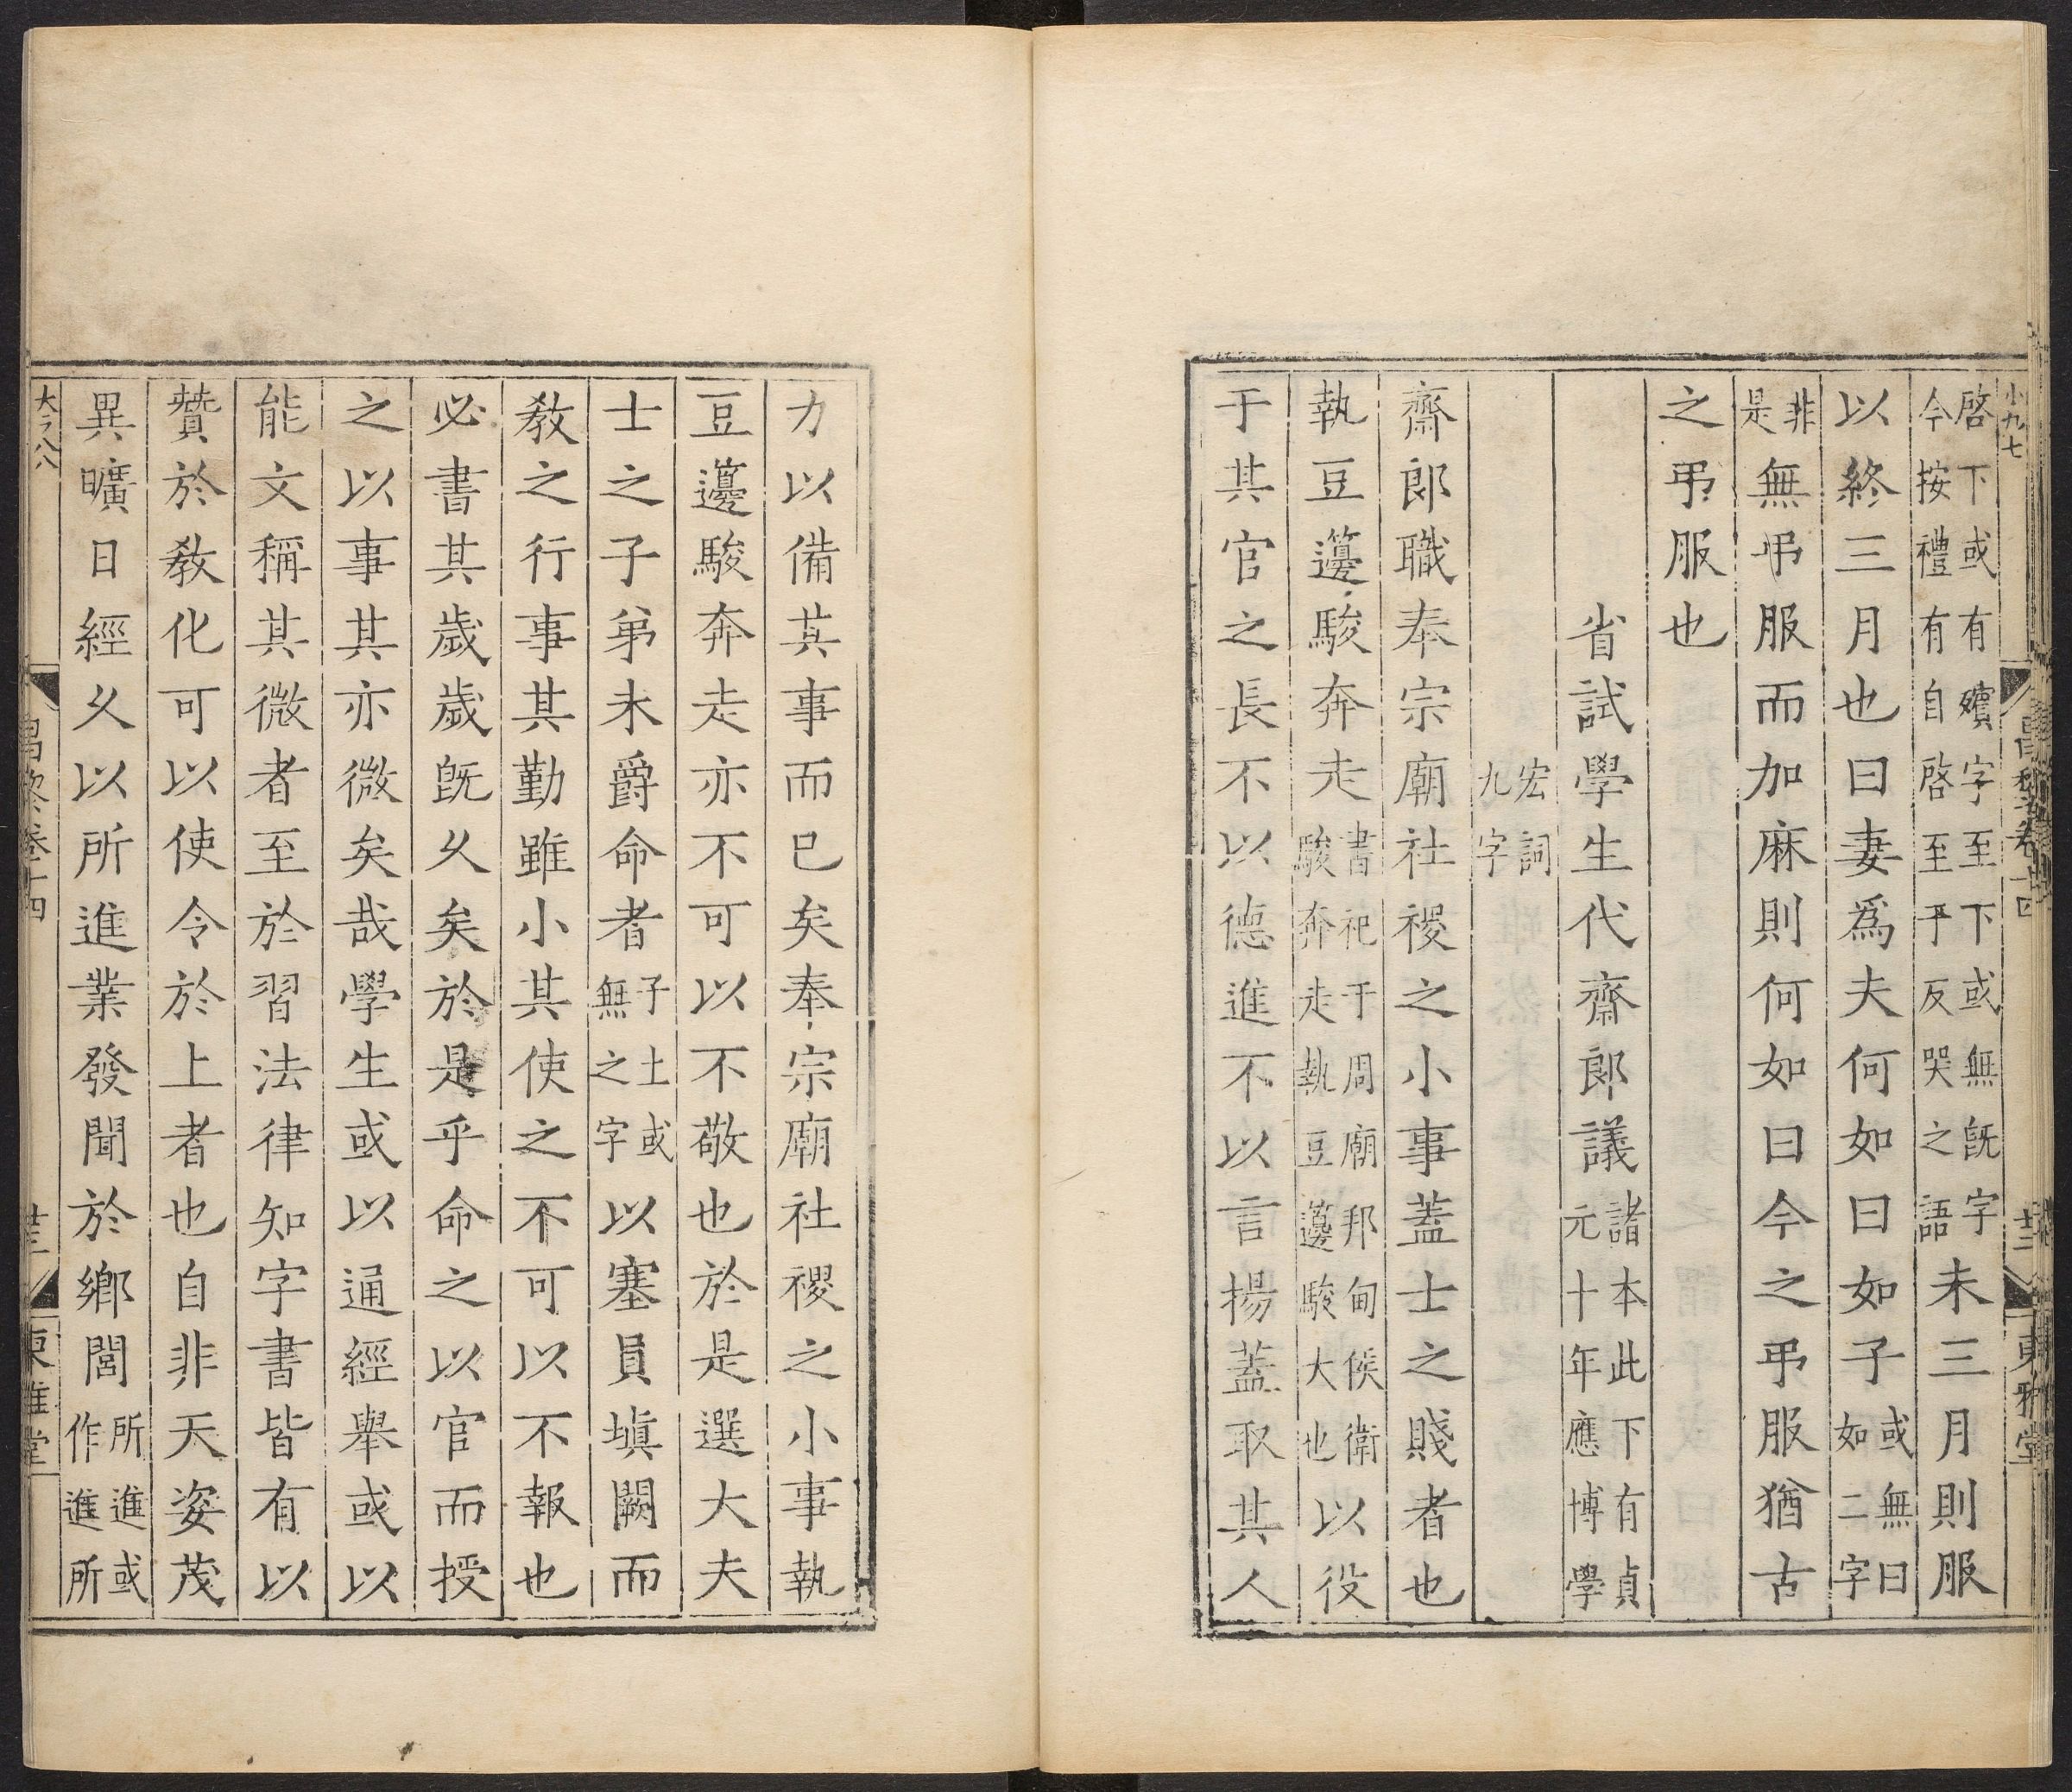 小九七
昌黎卷十四
東雅堂
啓下或有殰字至下或無旣字今按禮有自啓至于反哭之語未三月則服
以終三月也曰妻爲夫何如曰如子或無曰如二字
非是無弔服而加麻則何如曰今之弔服猶古
之弔服也
省試學生代齋郎議諸本此下有貞元十年應博學
宏詞九字
齋郎職奉宗廟社稷之小事蓋士之賤者也
執豆籩駿奔走書祀于周廟邦甸侯衛駿奔走執豆籩駿大也以役
于其官之長不以德進不以言揚蓋取其人
力以備其事而已矣奉宗廟社稷之小事執
豆籩駿奔走亦不可以不敬也於是選大夫
士之子弟未爵命者子士或無之字以塞員塡闕而
敎之行事其勤雖小其使之不可以不報也
必書其歲歲旣久矣於是乎命之以官而授
之以事其亦微矣哉學生或以通經舉或以
能文稱其微者至於習法律知字書皆有以
贊於敎化可以使令於上者也自非天姿茂
異曠日經久以所進業發聞於鄉閭所進或作進所
昌黎卷十四
東雅堂